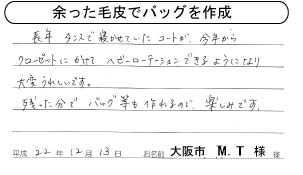 余った毛皮でバッグを作成
長年 タンスで寝かせていた コートが、今年から
クローゼットに かけて ヘビーローテーション できるように なり
大変うれしいです。
残った分で バッグ等も 作れるので、楽しみです。
平成 22 年 12 月 13 日 お名前 大阪市 M.T 様 様